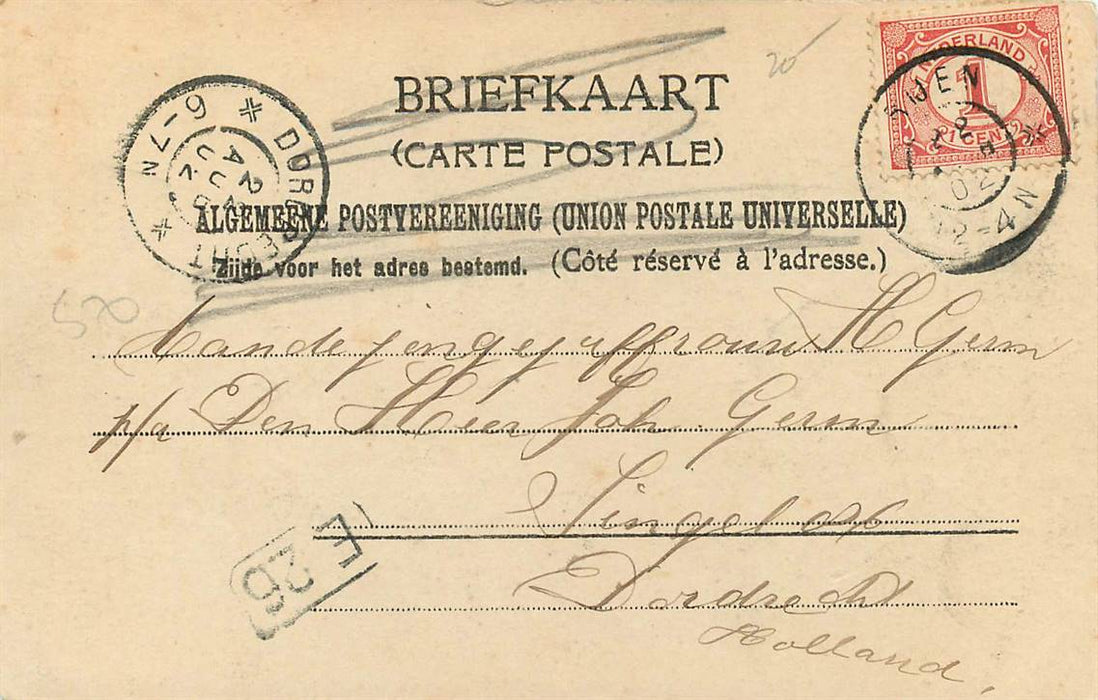 BRIEFKAART
(CARTE POSTALE)
ALGEMEENE POSTVEREENIGING (UNION POSTALE UNIVERSELLE)
Zijde voor het adres bestemd. (Côté réservé à l'adresse.)
NEDERLAND
1
CENT
DORDRECHT
6-7N
2 AUG 02
12-4 N
02
20
520
Aan de jongejuffrouw A Germ
p/a Den Heer Joh. Germ
Singel
Dordrecht
Holland,
E 26